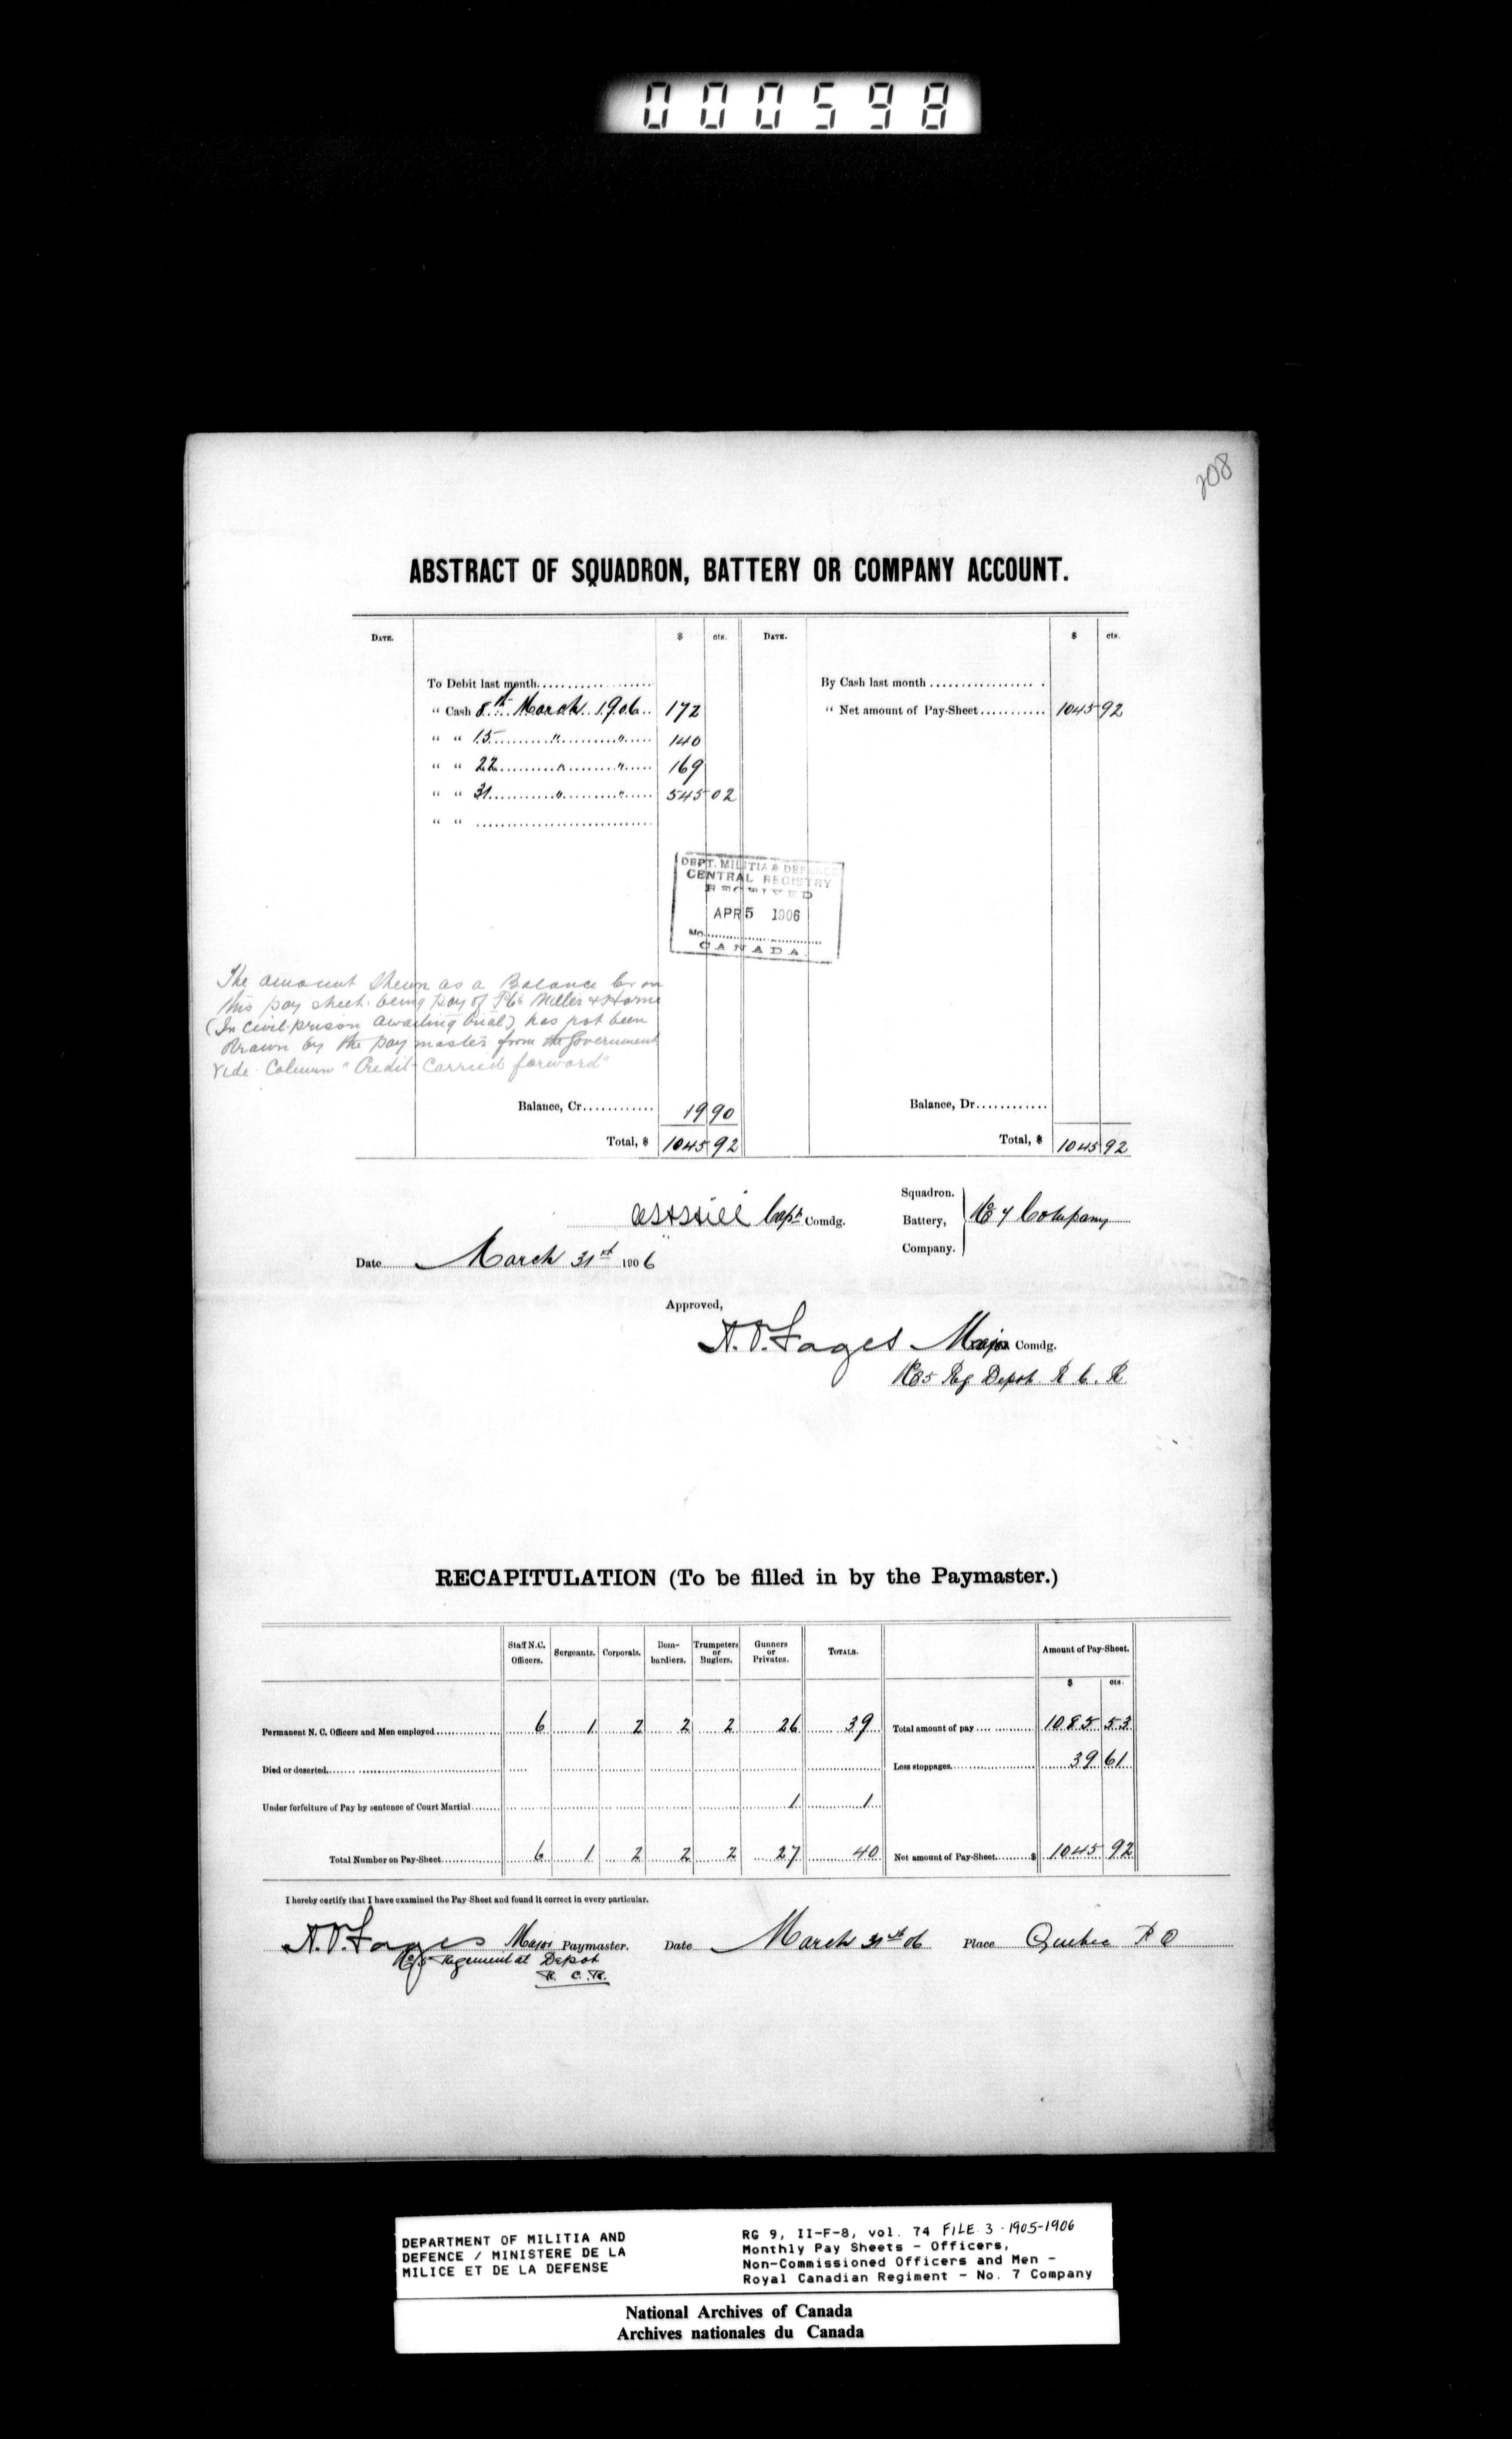 000598
208
ABSTRACT OF SQUADRON, BATTERY OR COMPANY ACCOUNT.
DATE. $ cts. DATE. $ cts.
To Debit last month By Cash last month
" Cash 8th March 1906 172 " Net amount of Pay-Sheet 1045 92
" " 15 " " 140
" " 22 " " 169
" " 31 " " 545 02
" "
DEPT. MILITIA & DEFENCE
CENTRAL REGISTRY
RECEIVED
APR 5 1906
No.
CANADA.
The amount shewn as a Balance Cr on
this pay sheet being pay of Ptes Miller & Horne
(In Civil prison awaiting trial) has not been
drawn by the paymaster from the Government
Vide Column "Credit Carried forward"
Balance, Cr. 19 90 Balance, Dr.
Total, $ 1045 92 Total, $ 1045 92
Capt Comdg.
Squadron.
Battery,
Company.
No 7 Company
Date March 31st 1906
Approved,
A.O. Fages Major Comdg.
No 5 Reg Depot R C. R
RECAPITULATION (To be filled in by the Paymaster.)
Staff N.C. Officers. Sergeants. Corporals. Bombardiers. Trumpeters or Buglers. Gunners or Privates. TOTALS. Amount of Pay-Sheet.
$ cts.
Permanent N. C. Officers and Men employed 6 1 2 2 2 26 39 Total amount of pay 1085 53
Died or deserted Less stoppages 39 61
Under forfeiture of Pay by sentence of Court Martial 1 1
Total Number on Pay-Sheet 6 1 2 2 2 27 40 Net amount of Pay-Sheet $ 1045 92
I hereby certify that I have examined the Pay Sheet and found it correct in every particular.
A.O. Fages Major Paymaster. Date March 31st 06 Place Quebec P Q
No 5 Regimental Depot
R. C. R.
DEPARTMENT OF MILITIA AND
DEFENCE / MINISTERE DE LA
MILICE ET DE LA DEFENSE
RG 9, II-F-8, vol. 74 FILE 3 · 1905-1906
Monthly Pay Sheets - Officers,
Non-Commissioned Officers and Men -
Royal Canadian Regiment - No. 7 Company
National Archives of Canada
Archives nationales du Canada